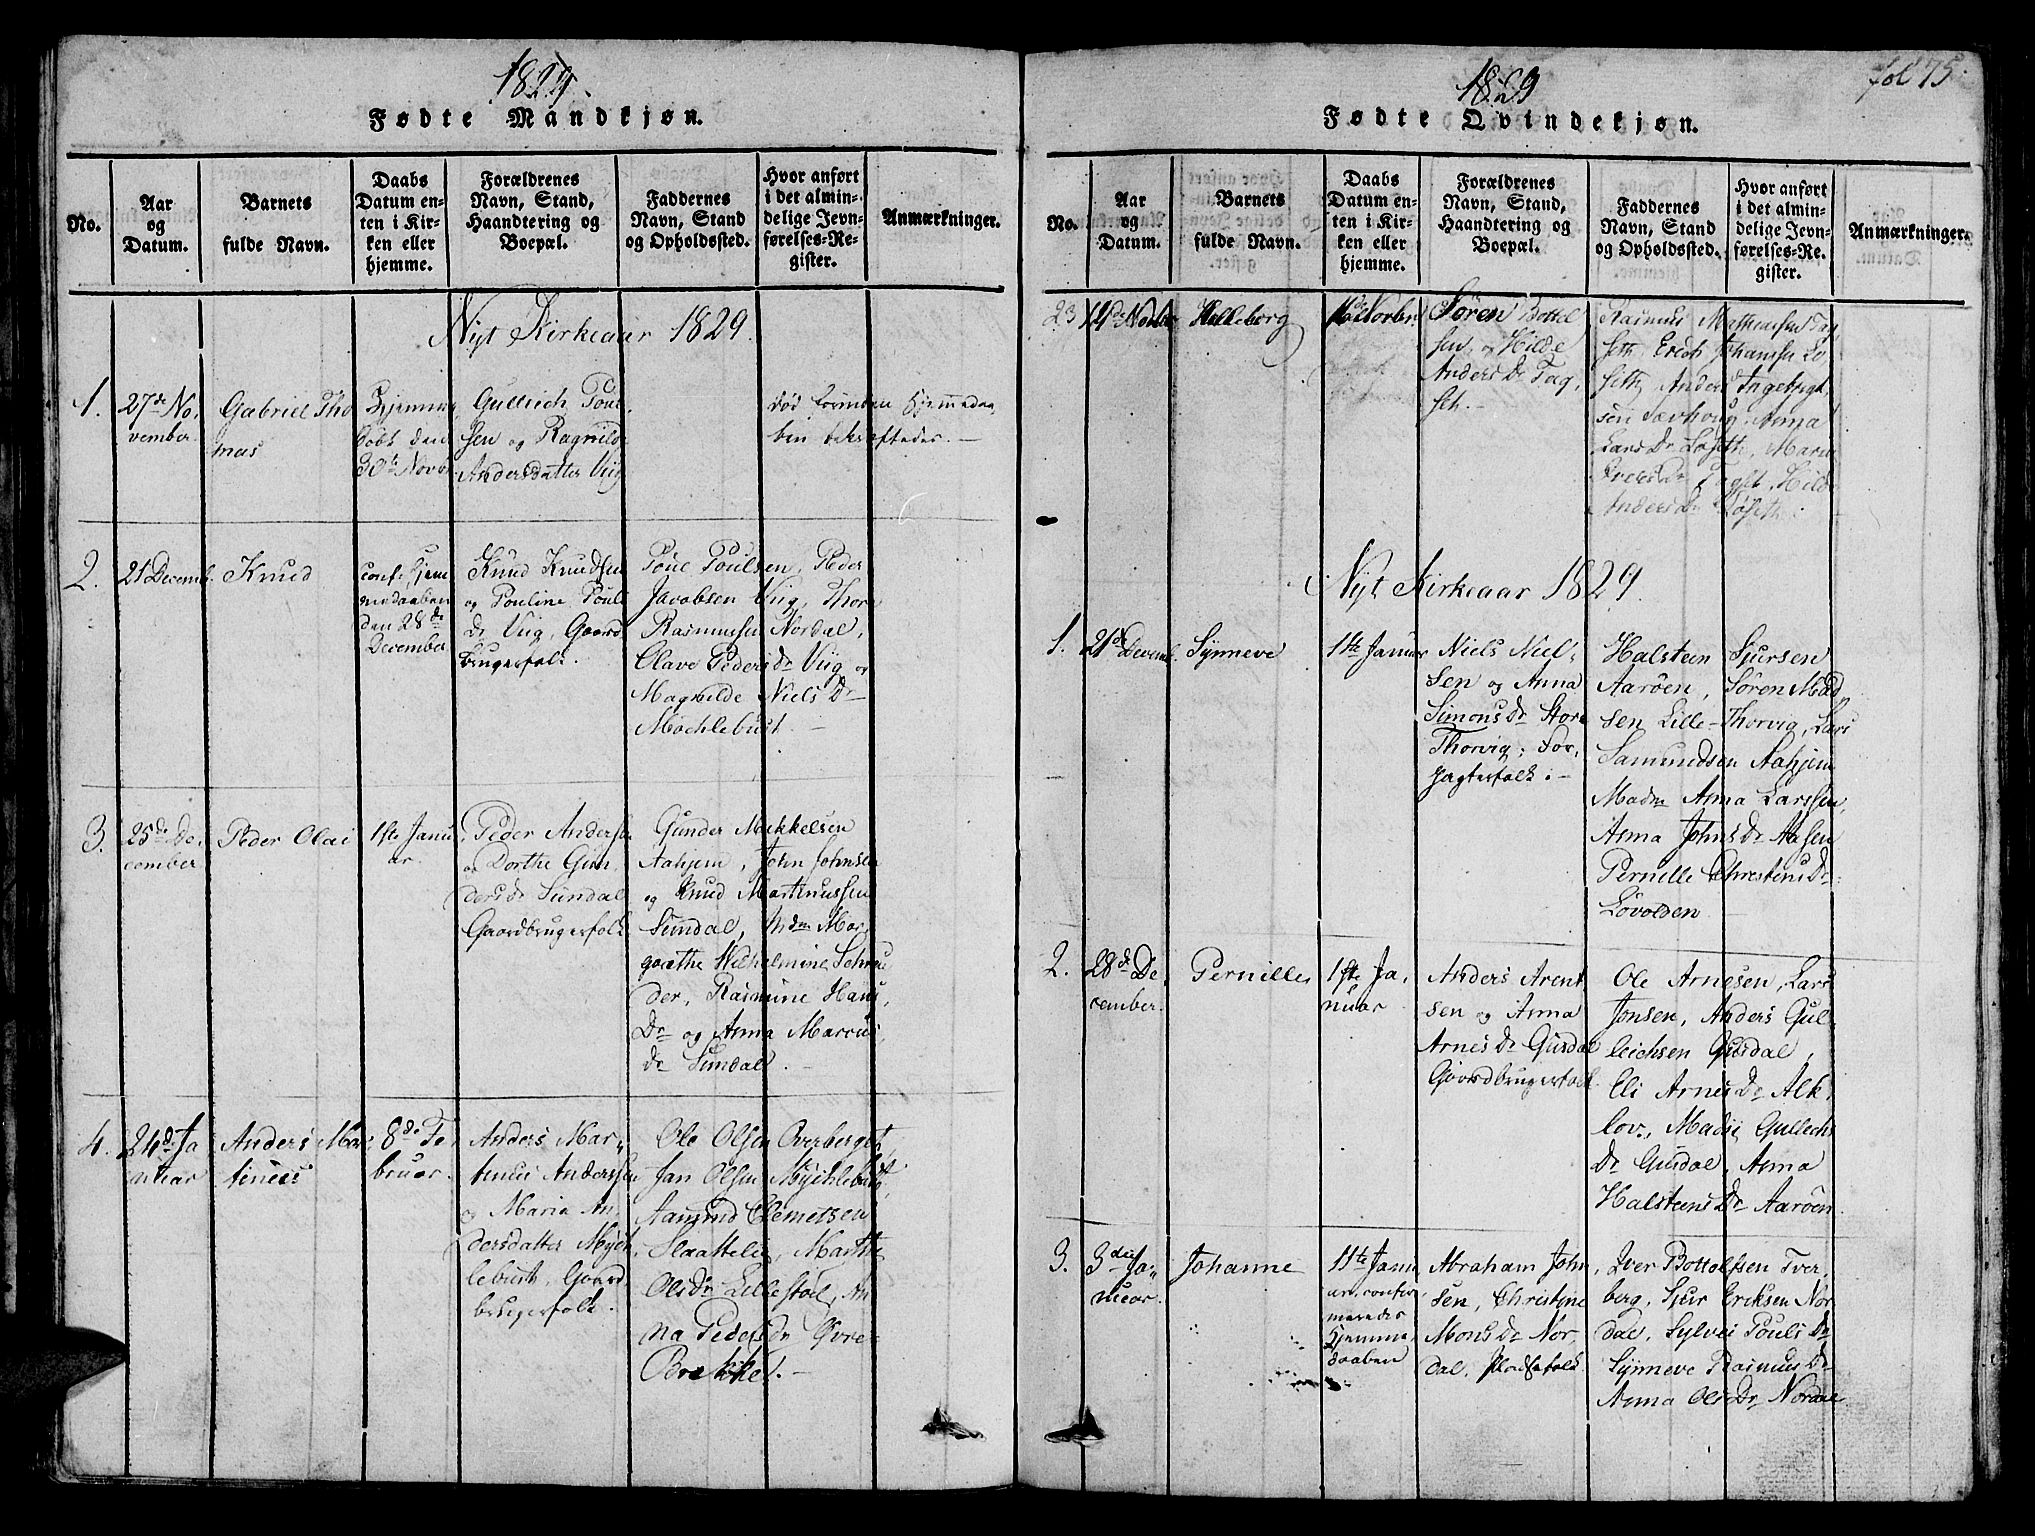 1829.
Fødte Mandkjøn.
No.
Aar
og
Datum.
Barnets
fulde Navn.
Daabs
Datum en-
ten i Kir-
ken eller
hjemme.
Forældrenes
Navn, Stand,
Haandtering og
Boepæl.
Faddernes
Navn, Stand
og Opholdssted.
Hvor anført
i det almin-
delige Jevn-
førelses-Re-
gister.
Anmærkninger.
Nyt Kirkeaar 1829.
1.
27de No,
vember.
Gabriel Tho
mas
Hjemme,
døbt den
30te Novbr
Gullich Poul
sen og Ragnild
Andersdatter Viig
død forinden Hjemmedaa
ben bekræftedes. —
2.
21 Decemb.
Knud
conf. Hjem
medaaben
den 28de
December
Knud Knudsen
og Pouline Pouls
Dr Viig, Gaard
brugerfolk.
Poue Poulsen, Peder
Jacobsen Viig, Thore
Rasmussen Nordal,
Olave Peders Dr Viig og
Magnilde Niels Dr
Mochlebust. —
3.
25de De,
cember
Peder Olai
1ste Janu
ar.
Peder Anderse
og Dorthe Gun
ders Dr Sundal
Gaardbrugerfolk.
Gunder Mikkelsen
Aahjem, John Johnsen
og Knud Martinussen
Sundal, Mdm Mar
grethe Wilhelmine Schrøu
der, Rasmine Hans
Dr og Anna Marcus
Dr Sundal. —
4.
24de Ja
nuar
Anders Mar,
tinus
8de Fe,
bruar.
Anders Mar„
tinus Anderssen
og Maria An
dersdatter Mych
lebust, Gaard
brugerfolk.
Ole Olsen Overberget,
Jan Olsen Mychlebust,
Aamund Clemetsen
Slaattelie, Marthe
Ols Dr Lillestøl, An
na Peders Dr Øvre-
Brekke. —
1829
Fødte Qvindekjøn.
fol 75.
No.
Aar
og
Datum.
Barnets
fulde Navn.
Daabs
Datum en-
ten i Kir-
ken eller
hjemme.
Forældrenes
Navn, Stand,
Haandtering og
Boepæl.
Faddernes
Navn, Stand
og Opholdssted.
Hvor anført
i det almin-
delige Jevn-
førelses-Re-
gister.
Anmærkninger.
23
14de Novbr
Helleborg
16de Novbr.
Søren Bottel
sen og Hilde
Anders Dr Tag,
seth. —
Rasmus Mathiassen Tag
seth, Erich Johansen Lø
seth, Anders Ingebrigt
sen Sævhoug, Anna
Lars Dr Løseth, Maria
Ivers Dr Tagset, Hilde
Anders Dr Løseth.
Nyt Kirkeaar 1829.
1.
21de Decemb.
Synneve
1ste Januar
Niels Niel,
sen og Anna
Simons Dr Store
Thorvig, For,
pagterfolk. —
Halsteen Sjursen
Aarøen, Søren Mad
sen Lille-Thorvig, Lars
Samundsen Aahjem
Madm Anna Larssen,
Anna Johns Dr Aasen
Pernille Christens Dr
Løvolden —
2.
28de De,
cember.
Pernille
1ste Ja,
nuar
Anders Arent
sen og Anna
Arnes Dr Gusdal
Gaardbrugerfolk.
Ole Arnesen, Lars
Jonsen, Anders Gul
leichsen Gusdal,
Eli Arnes Dr Alk,
lov., Madsi Gullechs
Dr Gusdal, Anna
Halsteens Dr Aarøen
3.
3die Ja„
nuar.
Johanne
11te Janu
ar, confir
meredes
Hjemme,
daaben
Abraham John,
sen, Christine
Mons Dr Nor,
dal, Pladsefolk.
Iver Bottolfsen Tver,
berg, Sjur Eriksen Nor
dal, Sylvei Pouls Dr
Synneve Rasmus Dr
Anna Ols Dr Nordal